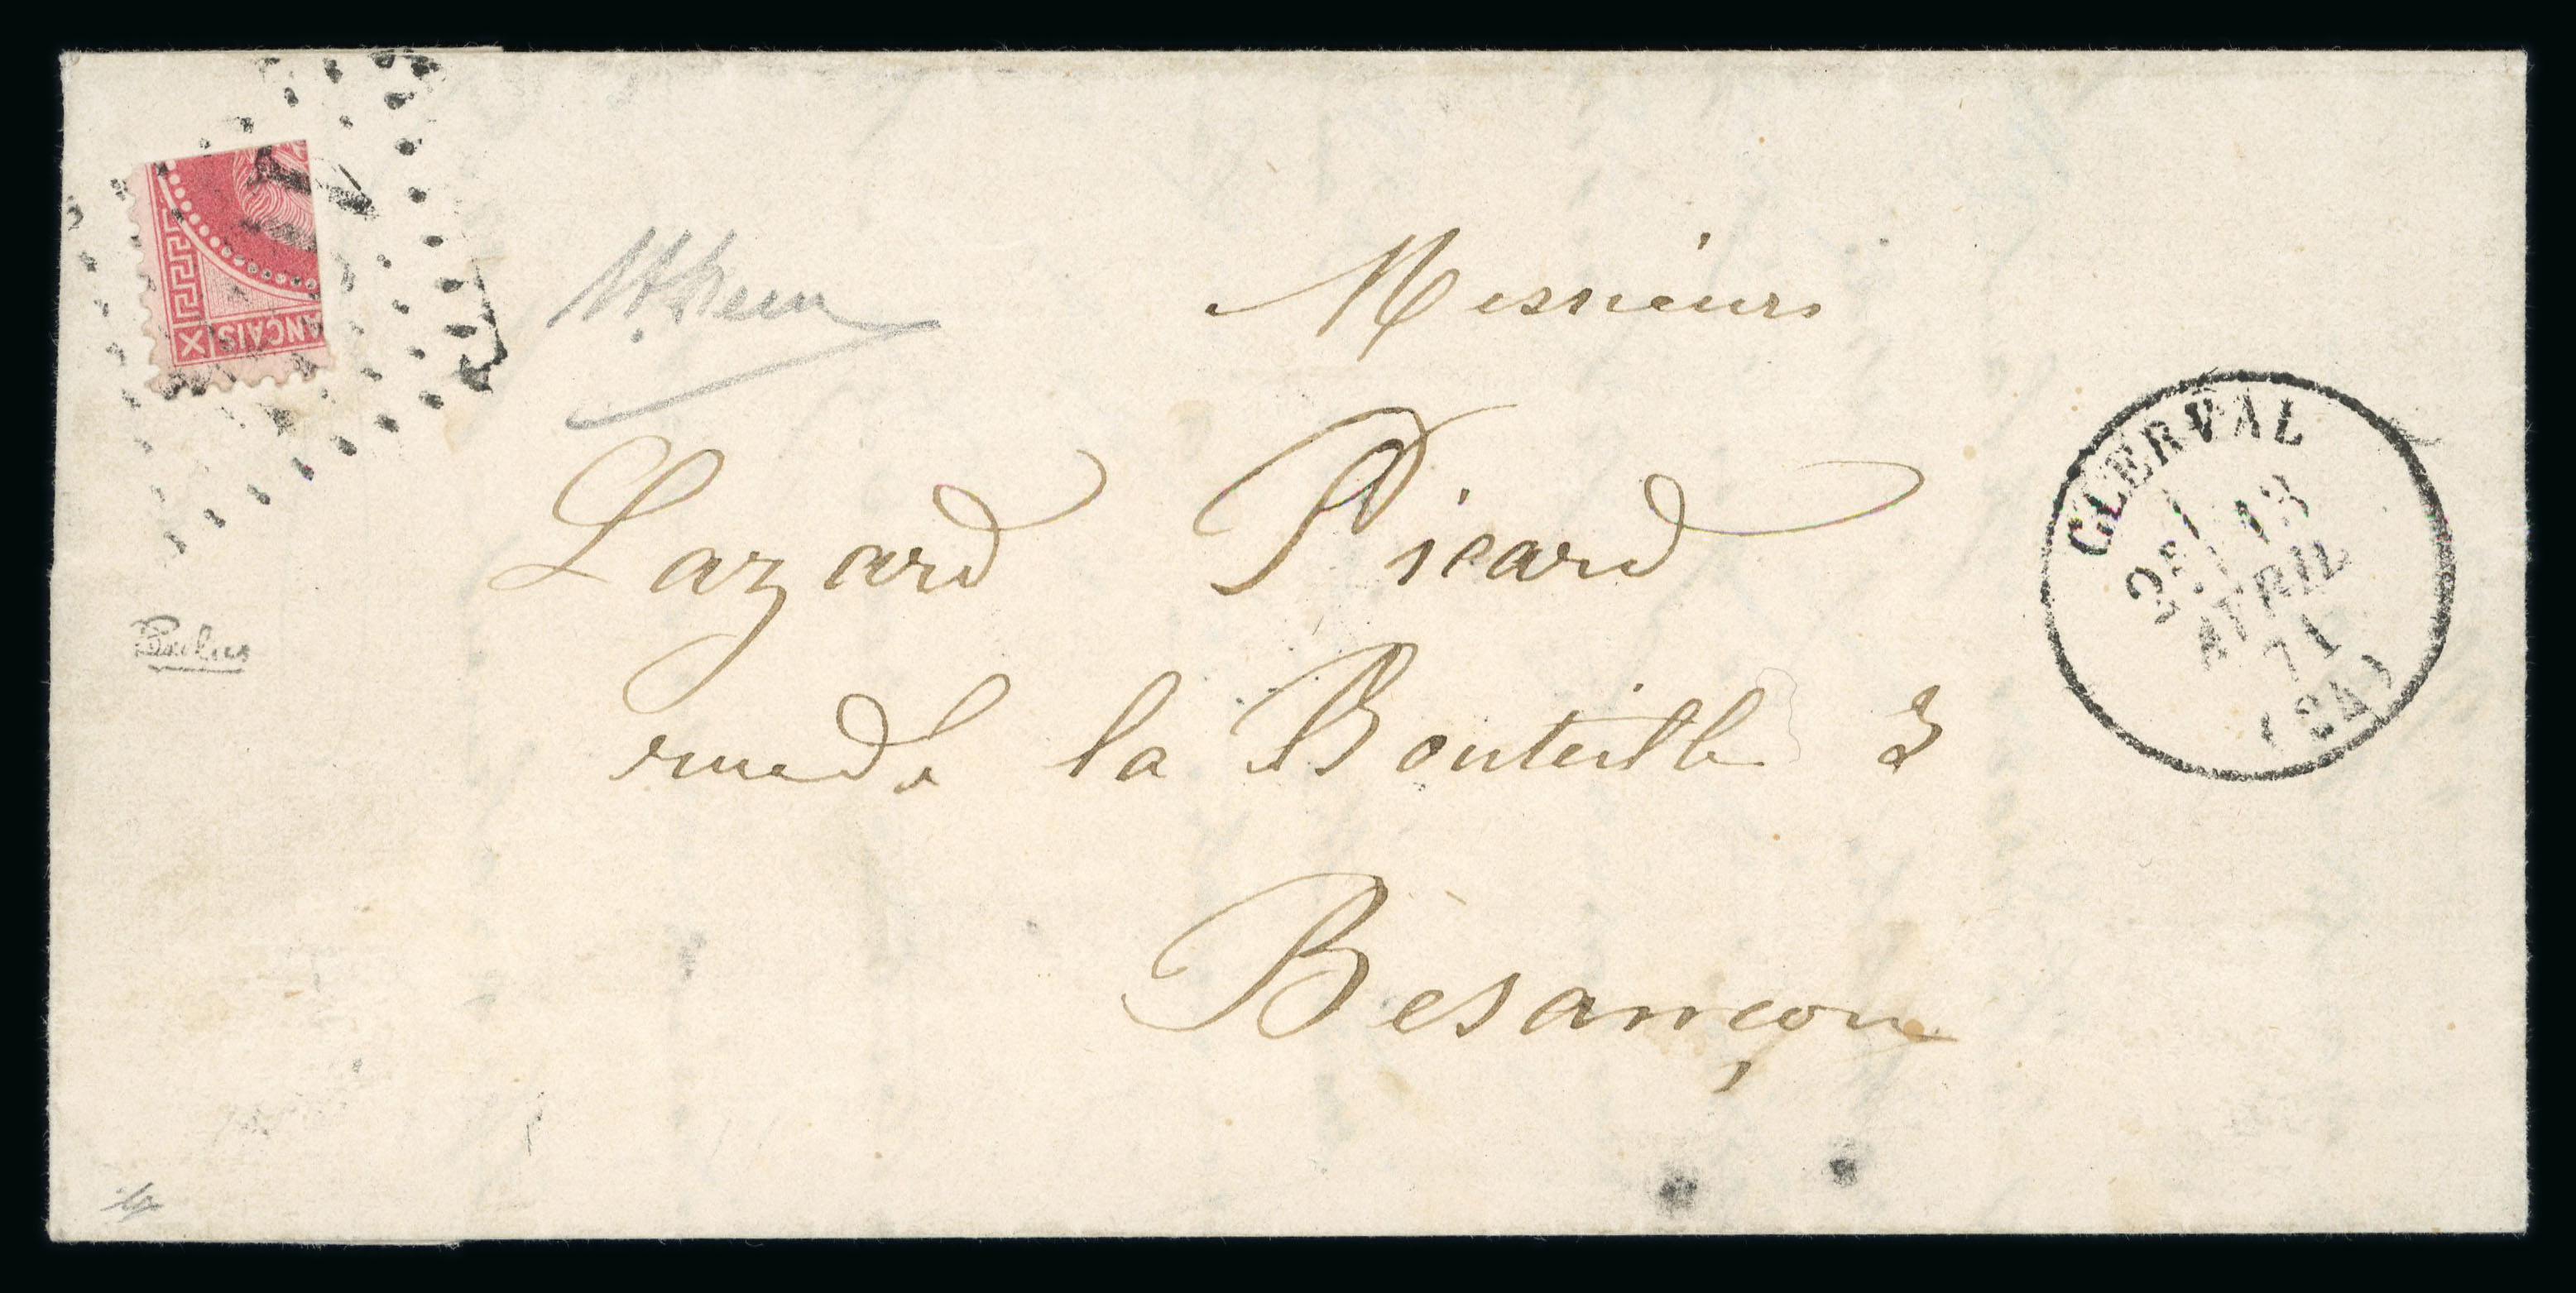 ANÇAIS
Messieurs
Lazard Picard
rue de la Bouteille 3
Besançon
CLERVAL
2E 13
AVRIL
71
(24)